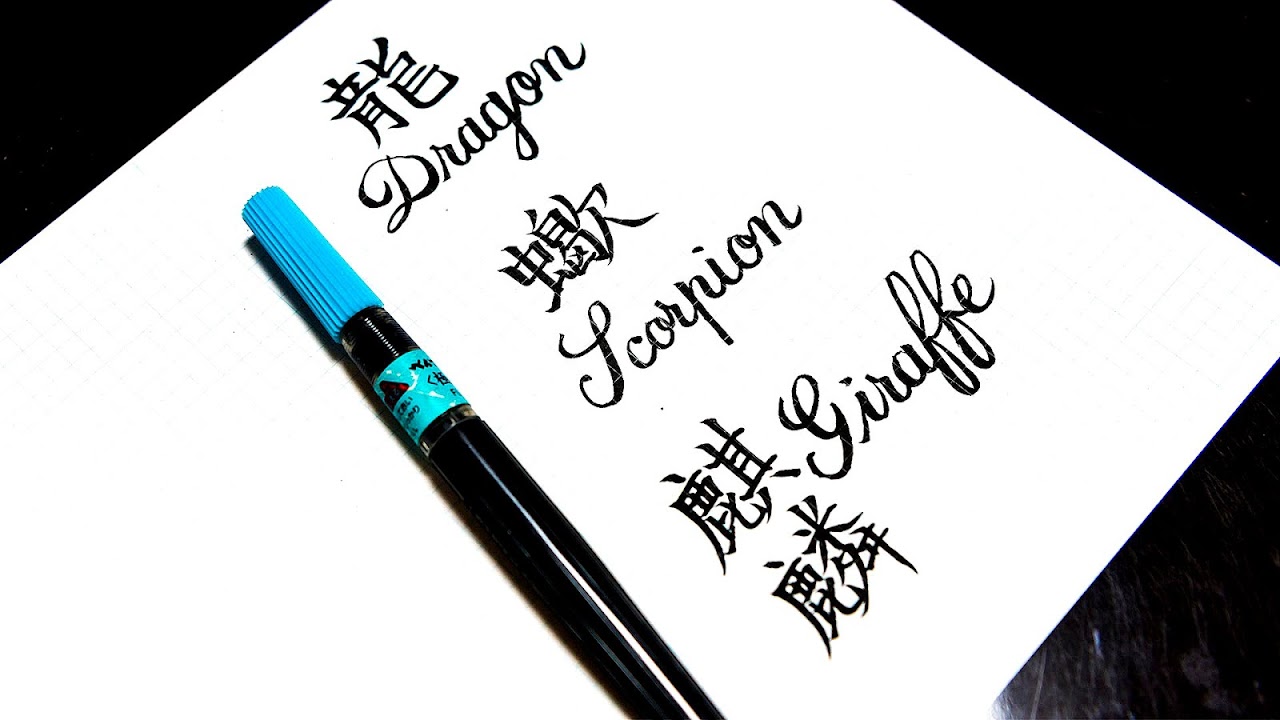 龍
Dragon
蠍
Scorpion
麒麟
Giraffe